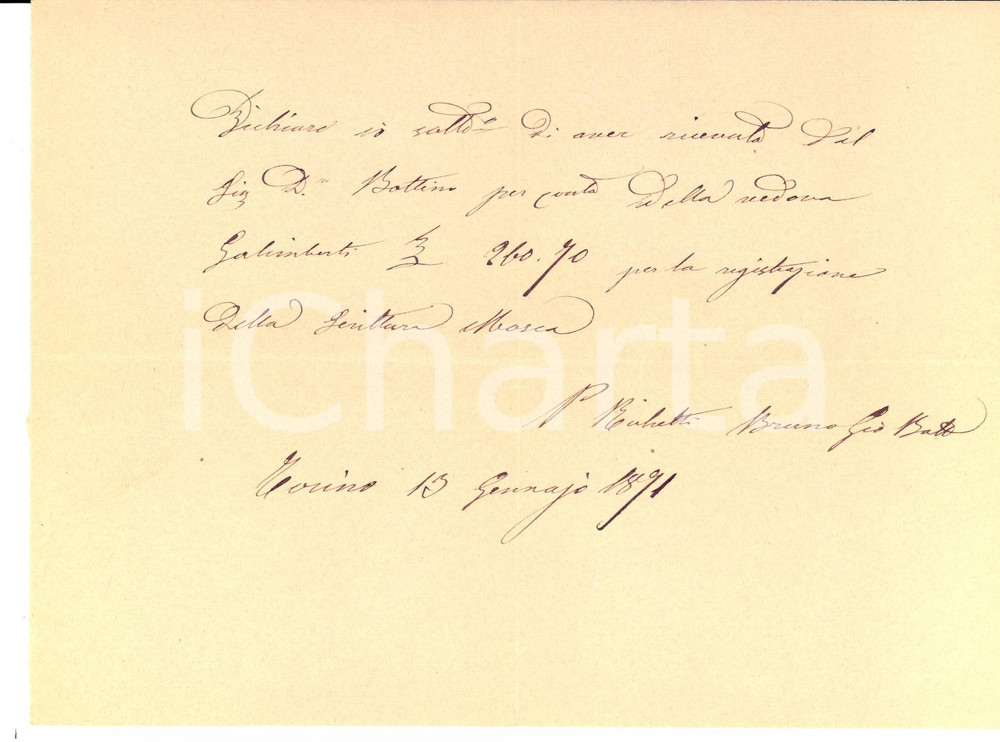 Dichiaro io sottoo di aver ricevuto dal
Sig Dr Bottino per conto della vedova
Galimberti £ 260.70 per la registrazione
della scrittura Mosca
P Richetti Bruno Gio Batta
Torino 13 Gennajo 1871
iCharta